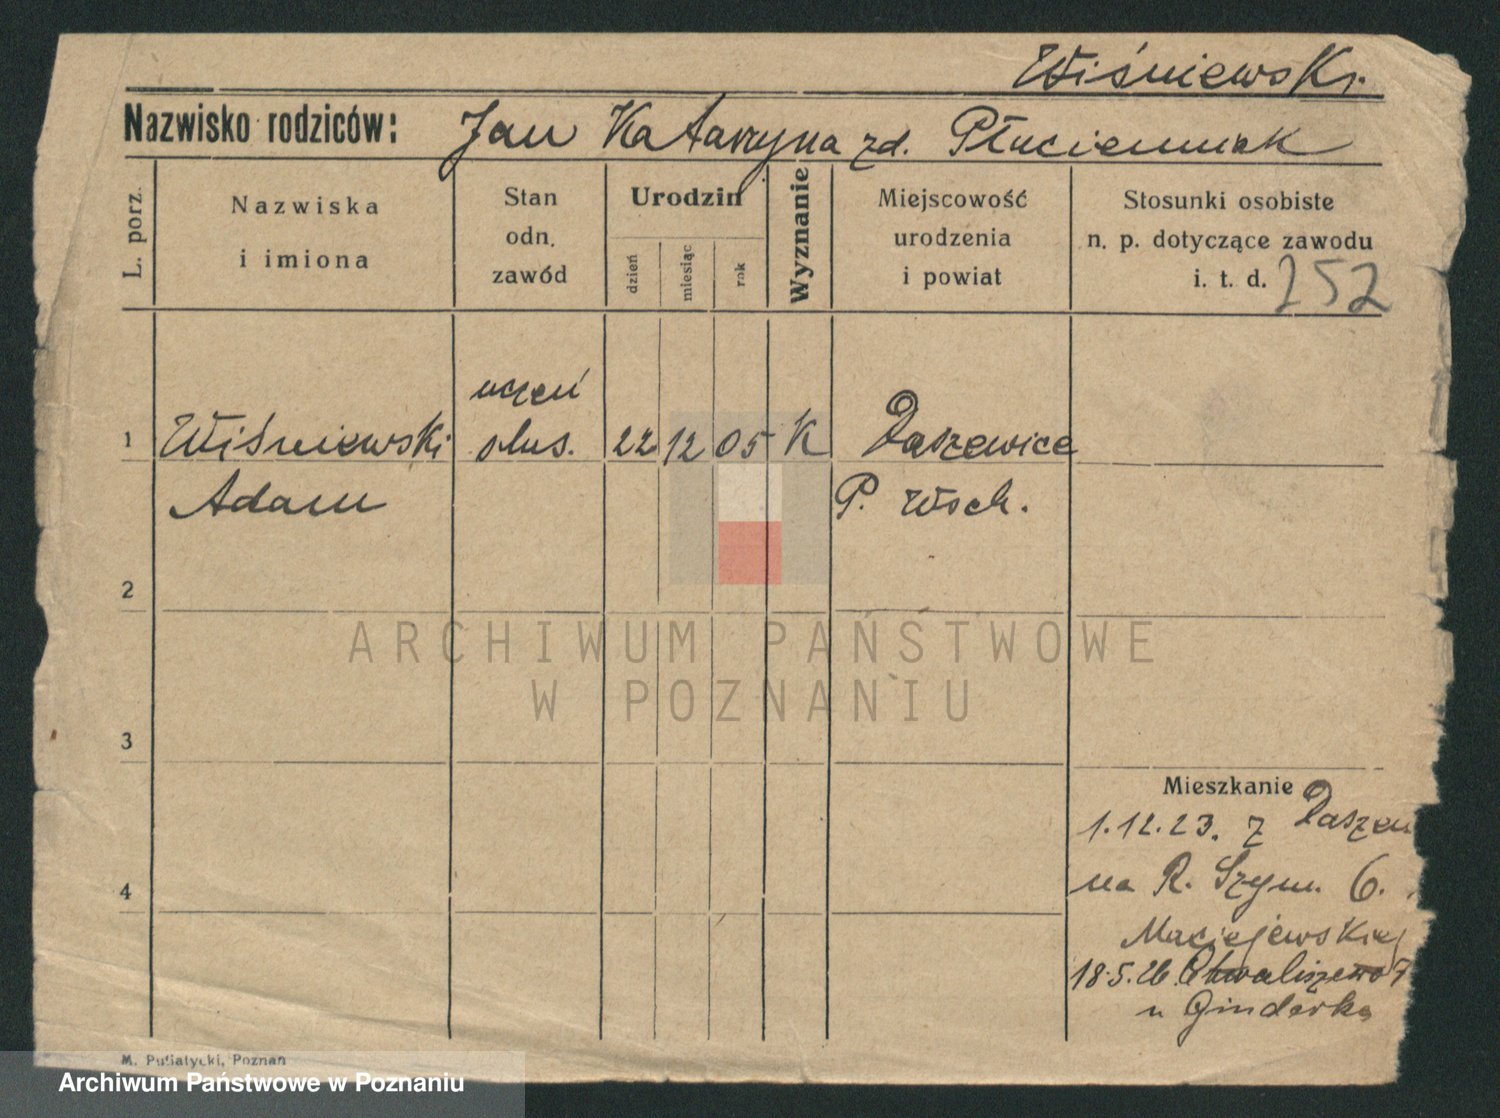 Wiśniewski.
Nazwisko rodziców: Jan Katarzyna zd. Płucienniak
L. porz.
Nazwiska
i imiona
Stan
odn.
zawód
Urodzin
dzień
miesiąc
rok
Wyznanie
Miejscowość
urodzenia
i powiat
Stosunki osobiste
n. p. dotyczące zawodu
i. t. d. 252
uczeń
1 Wiśniewski ślus. 22 12 05 K Daszewice
Adam P. Wsch.
2
ARCHIWUM PAŃSTWOWE
W POZNANIU
3
Mieszkanie
1.12.23. z Daszew
na R. Szym. 6.
4
Maciejewskiej
18.5.26 Chwaliszewo
u Ginderka
M. Putiatycki, Poznan
Archiwum Państwowe w Poznaniu